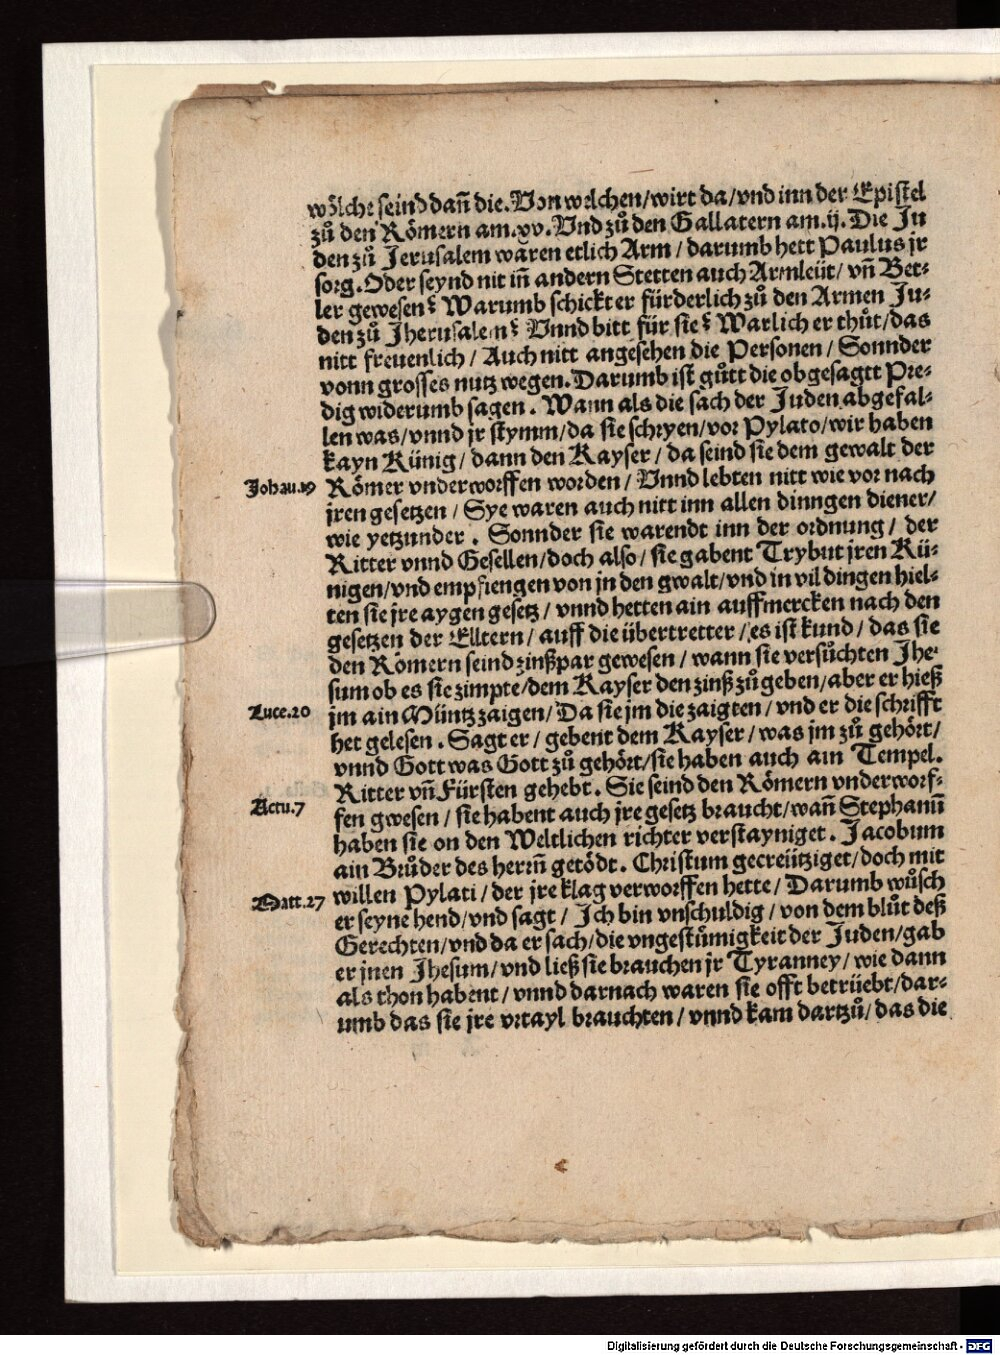 wölche seind dañ die. Von welchen/wirt da/vnd inn der Epistel
zů den Römern am.xv. Vnd zů den Gallatern am.ij. Die Ju
den zů Jerusalem wären etlich Arm / darumb hett Paulus jr
sorg. Oder seynd nit iñ andern Stetten auch Armleüt/ vñ Bet-
ler gewesen? Warumb schickt er fürderlich zů den Armen Ju-
den zů Jherusalem? Vnnd bitt für sie? Warlich er thůt/das
nitt freuenlich / Auch nitt angesehen die Personen / Sonnder
vonn grosses nutz wegen. Darumb ist gůtt die obgesagtt Pre-
dig widerumb sagen . Wann als die sach der Juden abgefal-
len was/vnnd jr stymm/da sie schryen/vor Pylato/wir haben
kayn Künig / dann den Kayser / da seind sie dem gewalt der
Johan.19 Römer vnderworffen worden / Vnnd lebten nitt wie vor nach
jren gesetzen / Sye waren auch nitt inn allen dinngen diener/
wie yetzunder . Sonnder sie warendt inn der ordnung / der
Ritter vnnd Gesellen/doch also/ sie gabent Trybut jren Kü-
nigen/vnd empfiengen von jn den gwalt/vnd in vil dingen hiel-
ten sie jre aygen gesetz / vnnd hetten ain auffmercken nach den
gesetzen der Elltern / auff die übertretter / es ist kund / das sie
den Römern seind zinßpar gewesen / wann sie versůchten Jhe-
sum ob es sie zimpte/dem Kayser den zinß zů geben/aber er hieß
Luce.20 jm ain Müntz zaigen/ Da sie jm die zaigten / vnd er die schrifft
het gelesen . Sagt er / gebent dem Kayser / was jm zů gehört/
vnnd Gott was Gott zů gehört/sie haben auch ain Tempel.
Ritter vñ Fürsten gehebt. Sie seind den Römern vnderworf-
Actu.7 fen gwesen / sie habent auch jre gesetz braucht/wañ Stephanũ
haben sie on den Weltlichen richter verstayniget . Jacobum
ain Brůder des herrñ getödt . Christum gecreützigt/doch mit
Matt.27 willen Pylati / der jre klag verworffen hette / Darumb wůsch
er seyne hend/vnd sagt / Ich bin vnschuldig / von dem blůt deß
Gerechten/vnd da er sach/die vngestůmigkeit der Juden/gab
er jnen Jhesum/vnd ließ sie brauchen jr Tyranney/ wie dann
als thon habent / vnnd darnach waren sie offt betrüebt/dar-
umb das sie jre vrtayl brauchten / vnnd kam dartzů/ das die
Digitalisierung gefördert durch die Deutsche Forschungsgemeinschaft - DFG